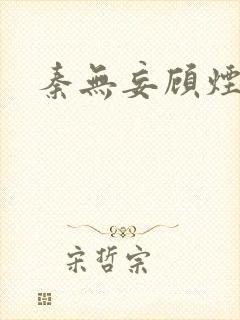 秦無妄顧煙
宋哲宗